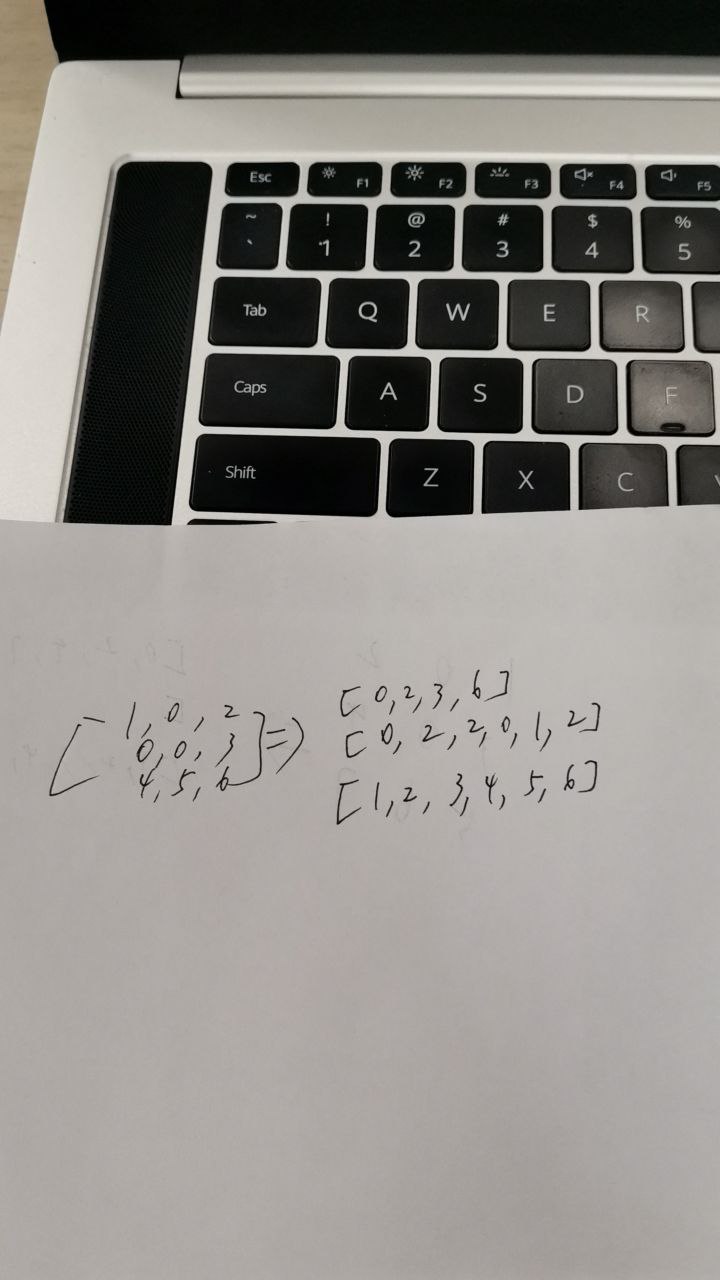 Esc F1 F2 F3 F4 F5
~ ! @ # $ %
` 1 2 3 4 5
Tab Q W E R
Caps A S D F
Shift Z X C
[0,2,3,6]
[1,0,2
0,0,3
4,5,6] =>
[0,2,2,0,1,2]
[1,2,3,4,5,6]